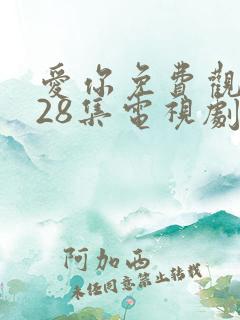 愛你免費觀
28集電視劇
阿加西
未经同意禁止转载